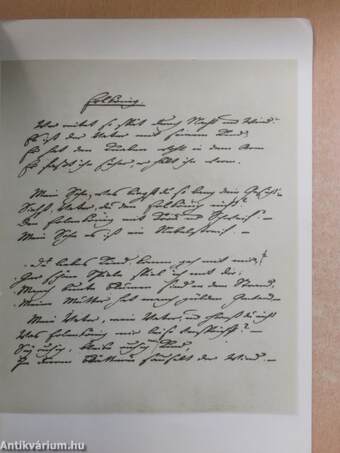 Erlkönig
Wer reitet so spät durch Nacht und Wind?
Es ist der Vater mit seinem Kind;
Er hat den Knaben wohl in dem Arm
Er fasst ihn sicher, er hält ihn warm.
Mein Sohn, was birgst du so bang dein Gesicht?
Siehst, Vater, du den Erlkönig nicht?
Den Erlenkönig mit Kron und Schweif. –
Mein Sohn es ist ein Nebelstreif. –
„Du liebes Kind komm geh mit mir!
Gar schöne Spiele spiel ich mit dir;
Manch bunte Blumen sind an dem Strand,
Meine Mutter hat manch gülden Gewand.
Mein Vater, mein Vater, und hörest du nicht
Was Erlenkönig mir leise verspricht? –
Sey ruhig, bleibe ruhig, Kind,
In dürren Blättern säuselt der Wind. –
Antikvárium.hu